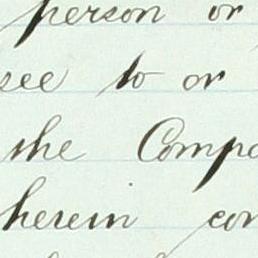 person or
see to or
the Compa
herein con